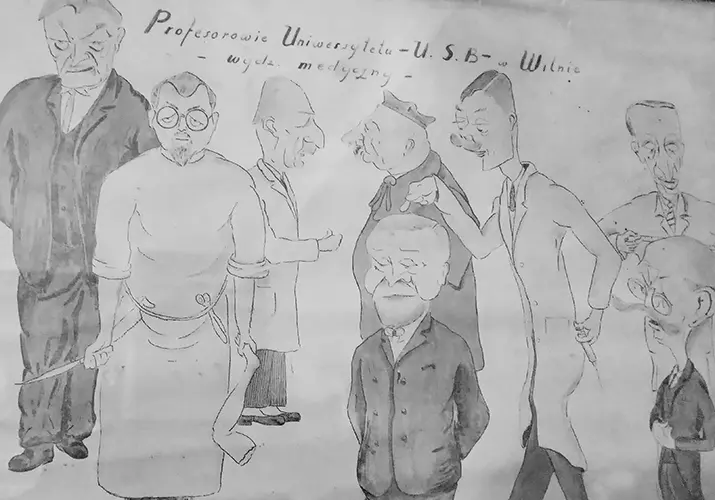 Profesorowie Uniwersytetu - U. S. B - w Wilnie
- wydz. medyczny -